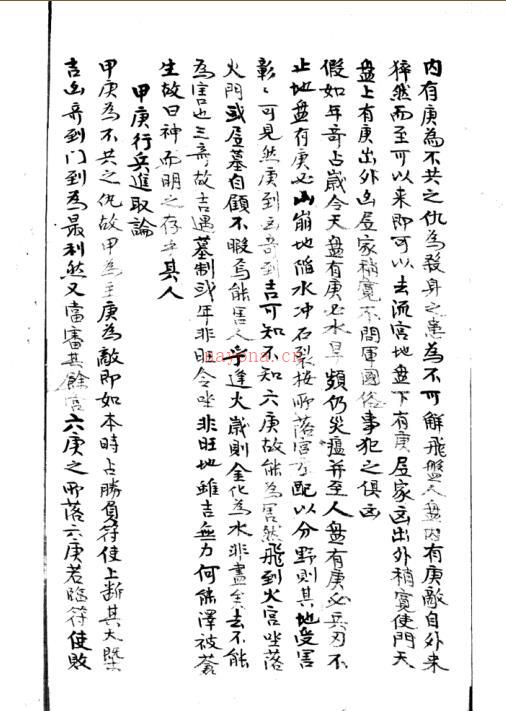 内有庚為不共之仇為殺身之患為不可解飛盤人盘内有庚敵自外来
猝然而至可以来即可以去流宫地盘下有庚居家凶出外稍寬使門天
盘上有庚出外凶居家稍寬不問軍國俗事犯之俱凶
假如年奇占歲令天盘有庚必水旱頻仍災瘟并至人盘有庚必兵刃不
止地盘有庚必山崩地陷水冲石裂按所落宫分配以分野則其地受害
彰彰可見然庚到凶奇到吉可知不知六庚故能為害然飛到火宫坐落
火門或居墓自顧不暇焉能害人守逢火歲則金化為水非盡矣去不能
為害也三奇故吉遇墓制或年非旺令坐非旺地雖吉無力何能澤被蒼
生故曰神而明之存乎其人
甲庚行兵進取論
甲庚為不共之仇故甲為主庚為敵即如本時占勝負符使上断其大槩
吉凶奇到门到為最利然又當審其餘宫六庚之所落六庚若臨符使敗
nayona.cn